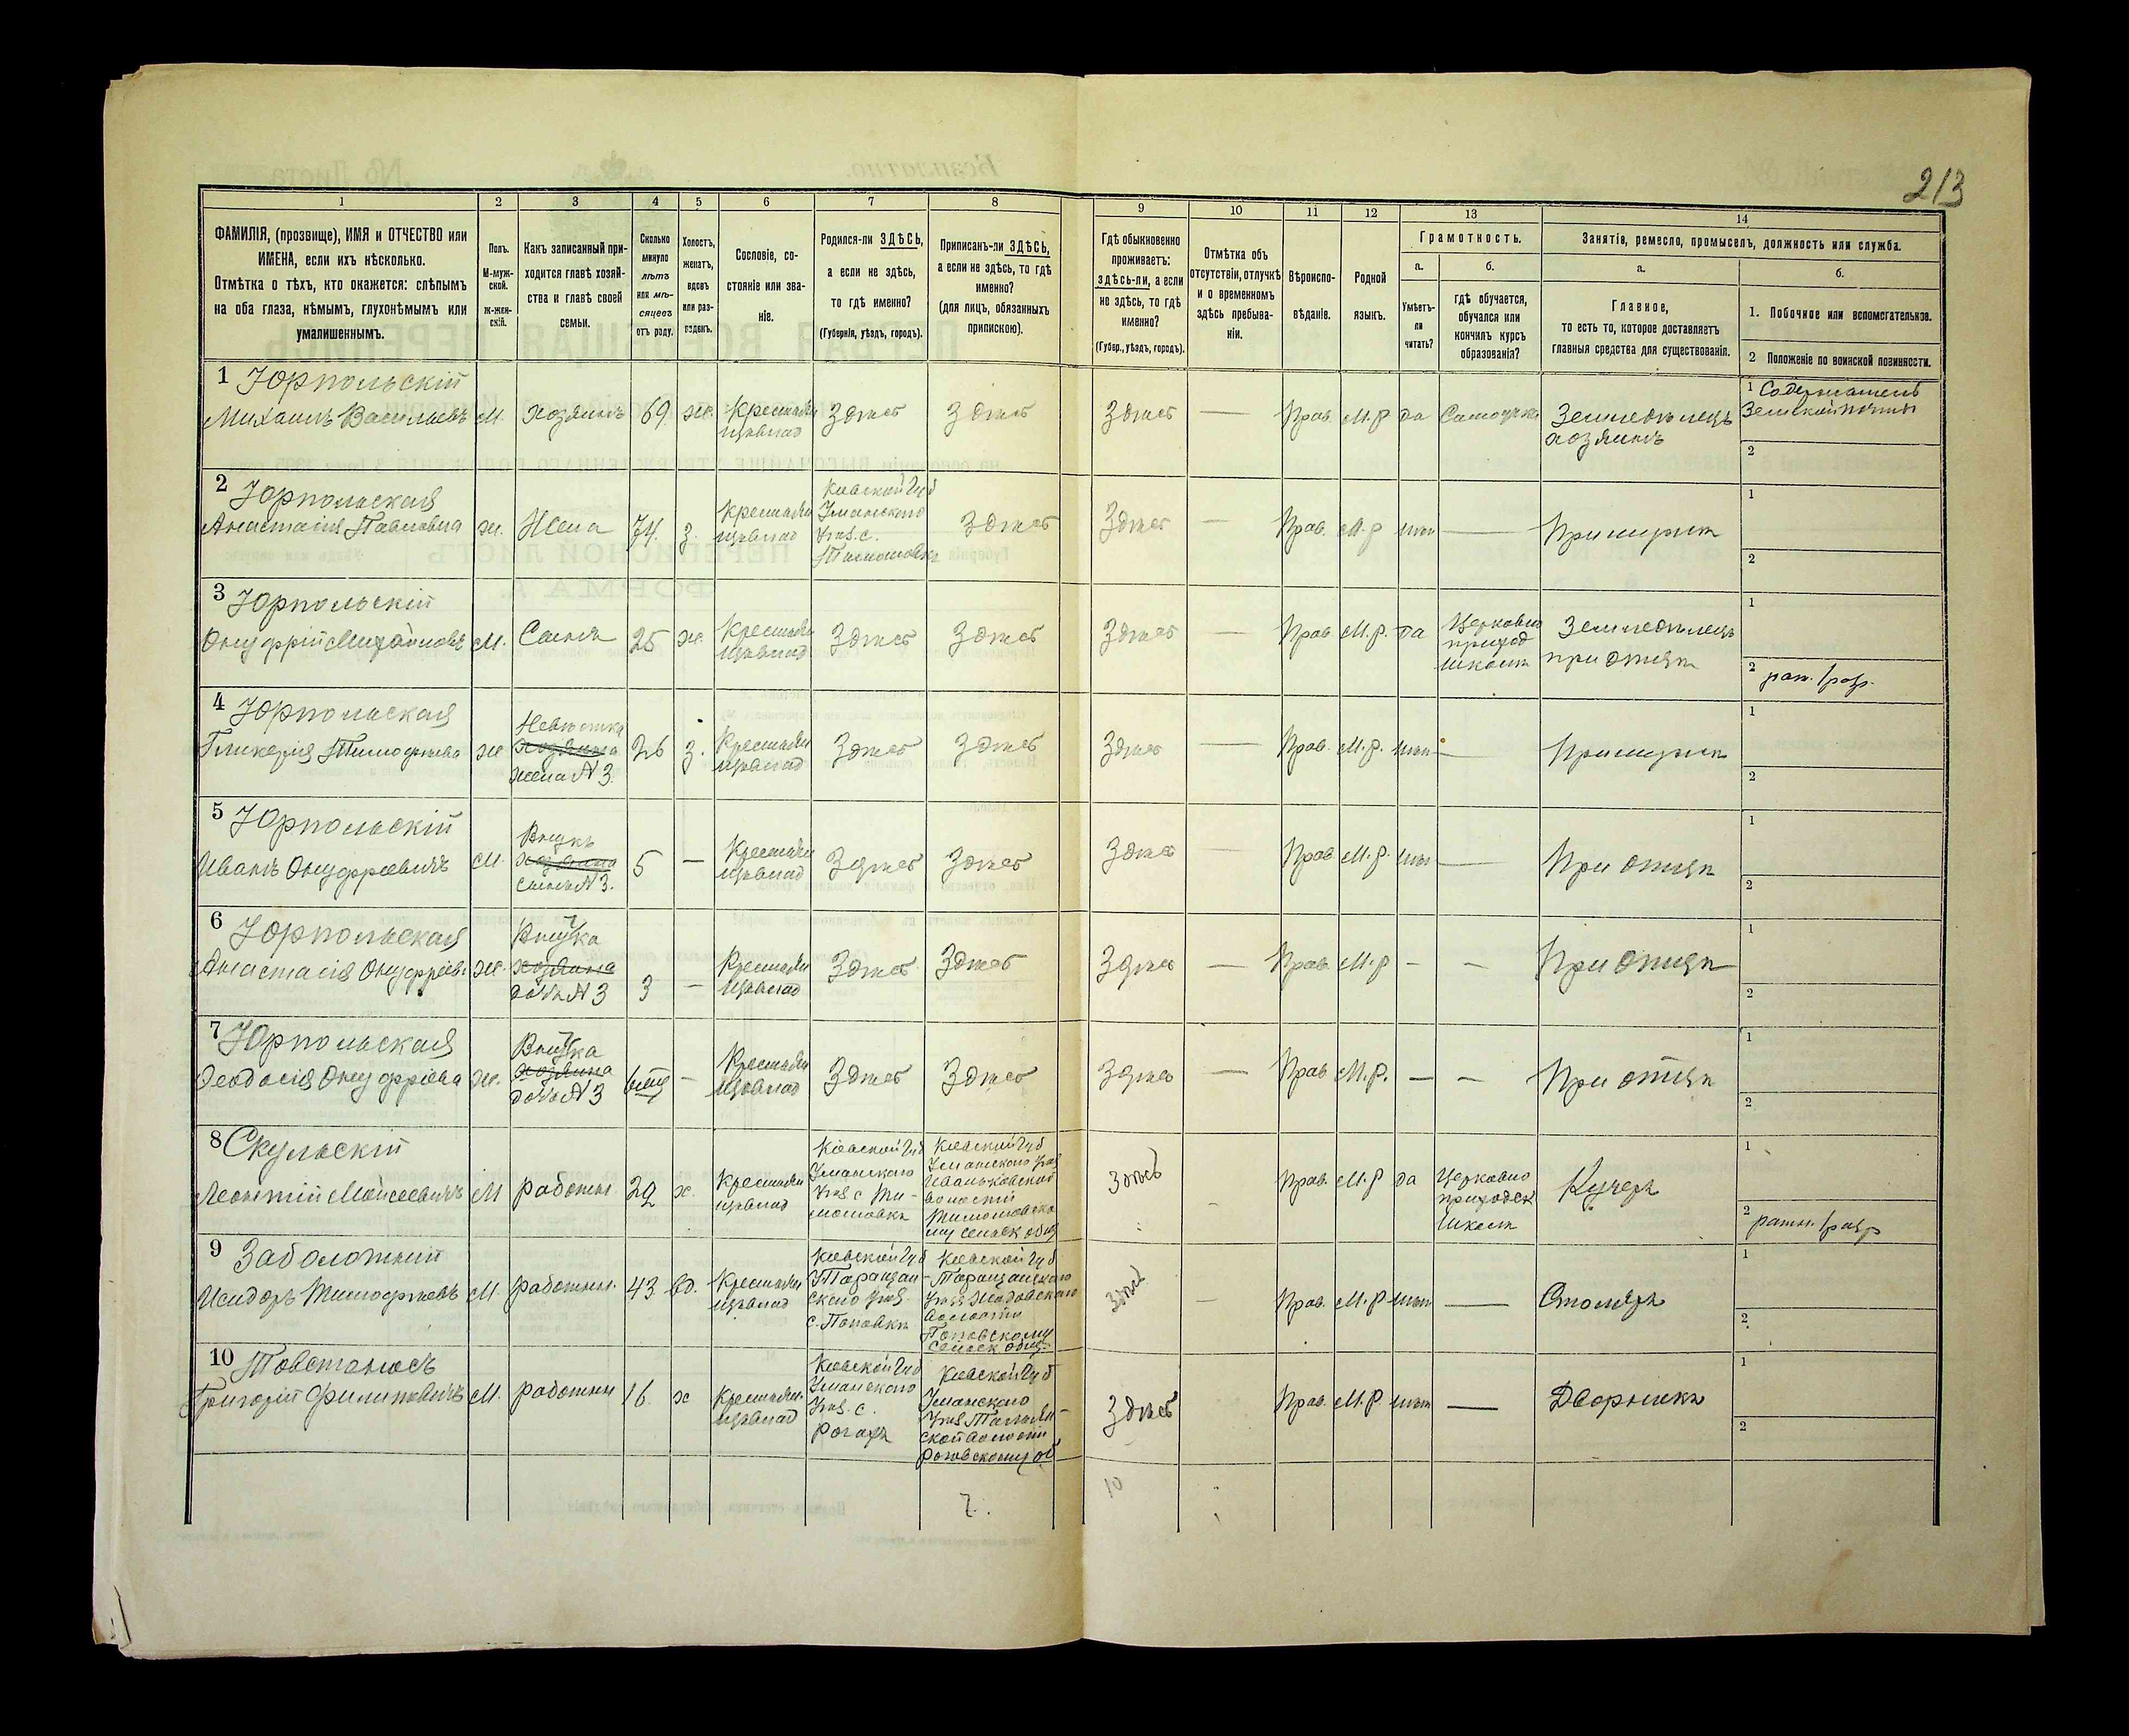 213
1 2 3 4 5 6 7 8 9 10 11 12 13 14
ФАМИЛІЯ, (прозвище), ИМЯ и ОТЧЕСТВО или
ИМЕНА, если ихъ нѣсколько.
Отмѣтка о тѣхъ, кто окажется: слѣпымъ
на оба глаза, нѣмымъ, глухонѣмымъ или
умалишеннымъ.
Полъ.
М-муж-
ской.
Ж-жен-
скій.
Какъ записанный при-
ходится главѣ хозяй-
ства и главѣ своей
семьи.
Сколько
минуло
лѣтъ
или мѣ-
сяцевъ
отъ роду.
Холостъ,
женатъ,
вдовъ
или раз-
веденъ.
Сословіе, со-
стояніе или зва-
ніе.
Родился-ли ЗДѢСЬ,
а если не здѣсь,
то гдѣ именно?
(Губернія, уѣздъ, городъ).
Приписанъ-ли ЗДѢСЬ,
а если не здѣсь, то гдѣ
именно?
(для лицъ, обязанныхъ
припискою).
Гдѣ обыкновенно
проживаетъ:
здѣсь-ли, а если
не здѣсь, то гдѣ
именно?
(Губер., уѣздъ, городъ).
Отмѣтка объ
отсутствіи, отлучкѣ
и о временномъ
здѣсь пребыва-
ніи.
Вѣроиспо-
вѣданіе.
Родной
языкъ.
Грамотность.
а.
Умѣетъ-
ли
читать?
б.
гдѣ обучается,
обучался или
кончилъ курсъ
образованія?
Занятіе, ремесло, промыселъ, должность или служба.
а.
Главное,
то есть то, которое доставляетъ
главныя средства для существованія.
б.
1. Побочное или вспомогательное.
2 Положеніе по воинской повинности.
1 Юрпольскій
Михаилъ Васильевъ М. хозяинъ 69 ж. Крестьян
изъ влад Здѣсь Здѣсь Здѣсь — Прав. М.р да Самоучка Земледѣлецъ
хозяинъ
1 Содержатель
Земской почты
2
2 Юрпольская
Анастасія Павловна ж. Жена 74. з. Крестьян
изъ влад
Кіевской губ
Уманского
уѣз. с.
Тимошовки
Здѣсь Здѣсь — Прав. М.р нѣт — При мужѣ
1
2
3 Юрпольскій
Онуфрій Михайловъ М. Сынъ 25 ж. Крестьян
изъ влад Здѣсь Здѣсь Здѣсь — Прав М.р. да
Церковно
приход
школѣ
Земледѣлецъ
при отцѣ
1
2 рат. 1 разр.
4 Юрпольская
Гликерія Тимофеева ж
Невѣстка
хозяина
жена N 3.
26 з. Крестьян
изъ влад Здѣсь Здѣсь Здѣсь — Прав. М.р. нѣт — При мужѣ
1
2
5 Юрпольскій
Иванъ Онуфріевичъ М.
Внукъ
хозяина
сынъ N 3.
5 — Крестьян
изъ влад Здѣсь Здѣсь Здѣсь — Прав. М.р. нѣт — При отцѣ
1
2
6 Юрпольская
Анастасія Онуфріев. ж.
Внучка
хозяина
дочь N 3
3 — Крестьян
изъ влад Здѣсь Здѣсь Здѣсь — Прав. М.р — — При отцѣ
1
2
7 Юрпольская
Феодосія Онуфріева ж.
Внучка
хозяина
дочь N 3
6 мц — Крестьян
изъ влад Здѣсь Здѣсь Здѣсь — Прав М.р. — — При отцѣ
1
2
8 Скульскій
Леонтій Моисеевичъ М работн. 29 х. Крестьян
изъ влад
Кіевской губ
Уманского
уѣз с Ти-
мошовки
Кіевской губ
Уманского уѣз
Иваньковской
волости
Тимошовско
му сельск общ
Здѣсь - Прав. М.р да
Церковно
приходск
школѣ
Кучеръ
1
2 ратн. 1 разр
9 Заболотный
Исидоръ Тимофеевъ М. работник. 43 вд. Крестьян
изъ влад
Кіевской губ
Таращан-
ского уѣз.
с. Поповки
Кіевской губ
Таращанского
волости
Поповскому
сельск общ.
Здѣсь — Прав. М.р нѣт — Столяръ
1
2.
10 Товстоносъ
Григорій Филиповичъ М. работни 16 х Крестьян.
изъ влад
Кіевской губ
Уманского
уѣз. с.
Рогахъ
Кіевской губ
Уманского
ской волости
Роговскому об
Здѣсь Прав. М.р. нѣт — Дворникъ
1
2
7. 10